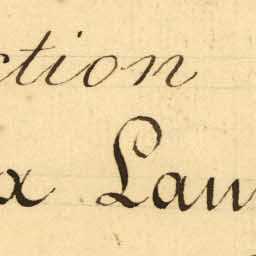 ction
x Law